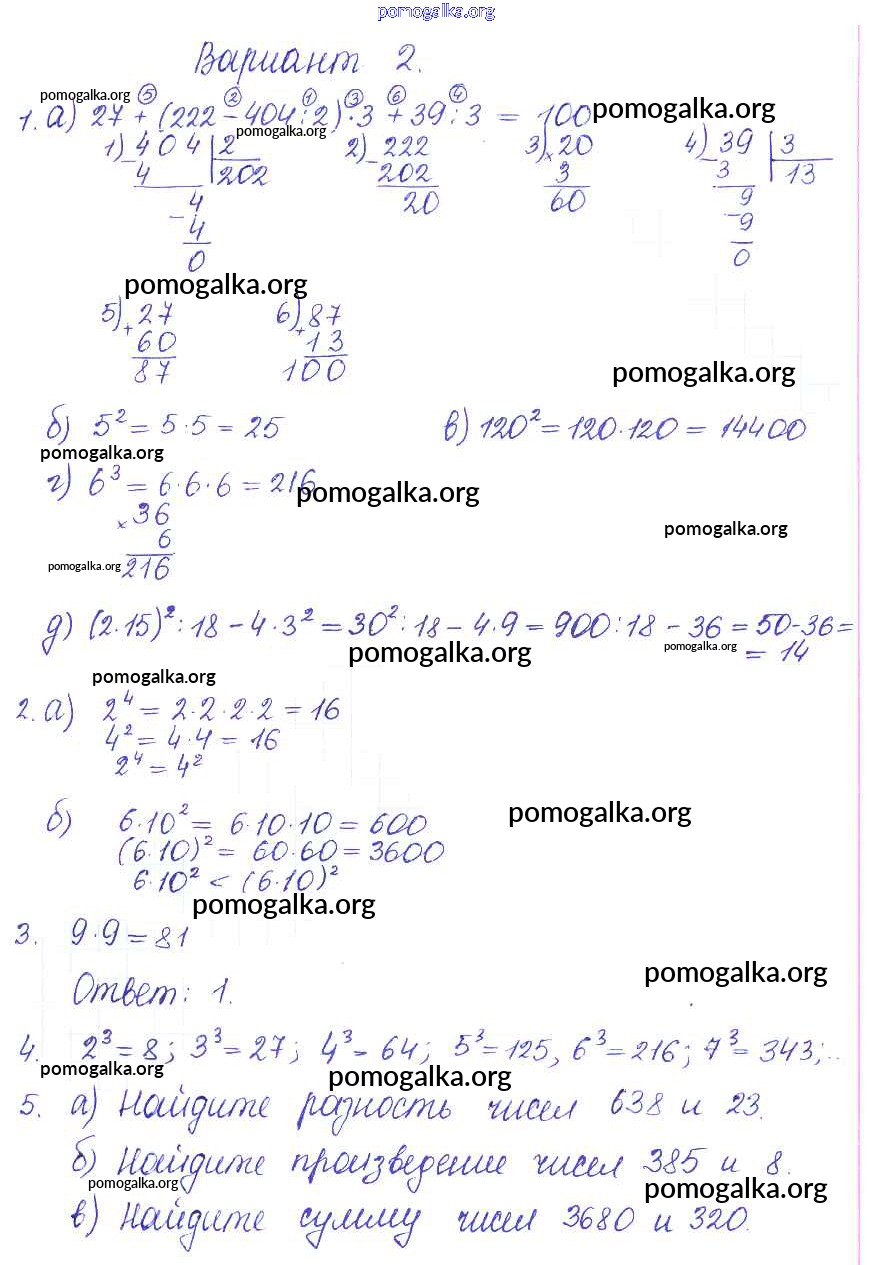 pomogalka.org
Вариант 2.
pomogalka.org ⑤ ② ① ③ ⑥ ④
1. а) 27 + (222 - 404 : 2) · 3 + 39 : 3 = 100 pomogalka.org
pomogalka.org
1) 404 2 2) 222 3) × 20 4) 39 3
- 4 202 - 202 3 - 3 13
4 20 60 9
- 4 - 9
0 0
pomogalka.org
5) 27 6) 87
+ 60 + 13
87 100
pomogalka.org
б) 5² = 5 · 5 = 25 в) 120² = 120 · 120 = 14400
pomogalka.org
г) 6³ = 6 · 6 · 6 = 216 pomogalka.org
× 36
6 pomogalka.org
pomogalka.org 216
д) (2 · 15)² : 18 - 4 · 3² = 30² : 18 - 4 · 9 = 900 : 18 - 36 = 50 - 36 =
pomogalka.org pomogalka.org = 14
pomogalka.org
2. а) 2⁴ = 2 · 2 · 2 · 2 = 16
4² = 4 · 4 = 16
2⁴ = 4²
б) 6 · 10² = 6 · 10 · 10 = 600 pomogalka.org
(6 · 10)² = 60 · 60 = 3600
6 · 10² < (6 · 10)²
pomogalka.org
3. 9 · 9 = 81
pomogalka.org
Ответ: 1.
4. 2³ = 8; 3³ = 27; 4³ - 64; 5³ = 125, 6³ = 216; 7³ = 343;..
pomogalka.org pomogalka.org
5. а) Найдите разность чисел 638 и 23.
б) Найдите произведение чисел 385 и 8.
pomogalka.org pomogalka.org
в) Найдите сумму чисел 3680 и 320.